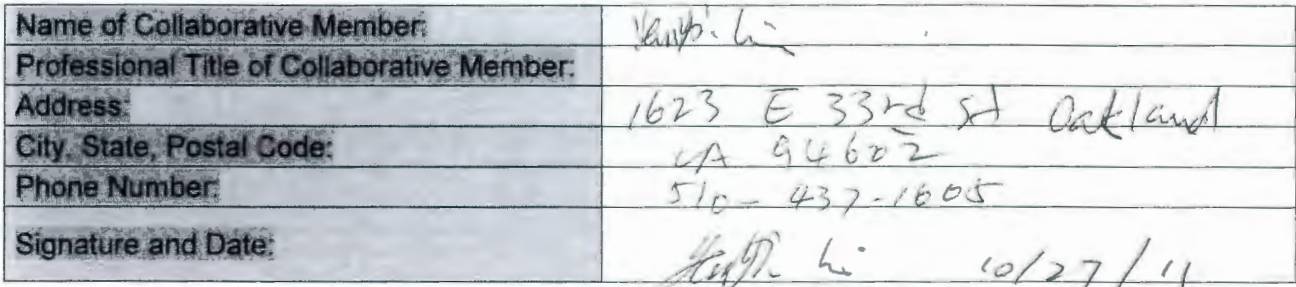 Name of Collaborative Member:
Professional Title of Collaborative Member:
Address: 1623 E 33rd St Oakland
City, State, Postal Code: CA 94602
Phone Number: 510-437-1605
Signature and Date: 10/27/11